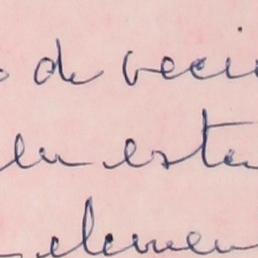 de veci
en esta
elemen